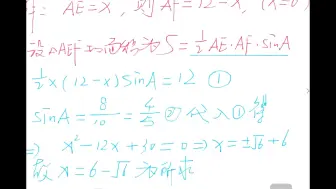 AE=x, 则AF=12-x, (x=0
设△AEF的面积为S=½AE·AF·sinA
½x(12-x)sinA=12 ①
sinA=8/10=4/5 ②代入①得
⇒ x²-12x+30=0⇒x=±√6+6
故x=6-√6为所求